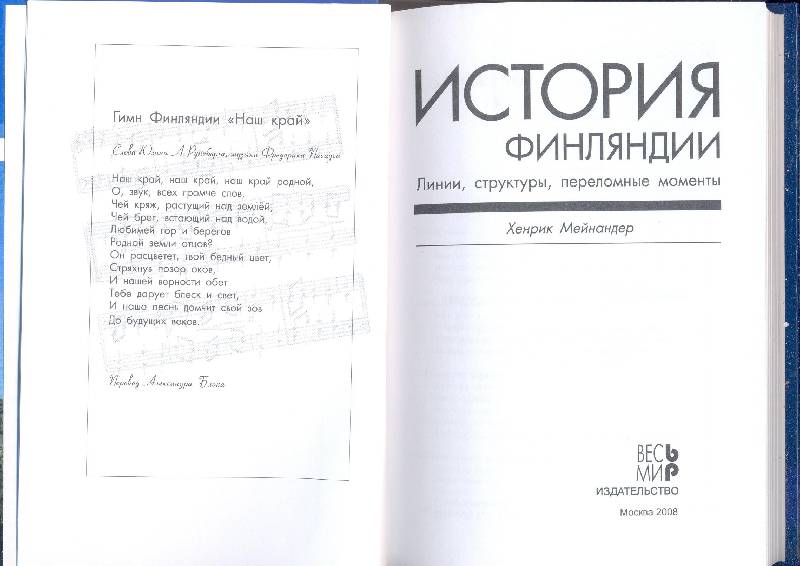 Гимн Финляндии «Наш край»
Слова Юхана Л. Рунеберга, музыка Фредерика Пациуса
Наш край, наш край, наш край родной,
О, звук, всех громче слов.
Чей кряж, растущий над землёй,
Чей брег, встающий над водой,
Любимей гор и берегов
Родной земли отцов?
Он расцветет, твой бедный цвет,
Стряхнув позор оков,
И нашей верности обет
Тебе дарует блеск и свет,
И наша песнь домчит свой зов
До будущих веков.
Перевод Александра Блока
ИСТОРИЯ
ФИНЛЯНДИИ
Линии, структуры, переломные моменты
Хенрик Мейнандер
ВЕСЬ
МИР
ИЗДАТЕЛЬСТВО
Москва 2008